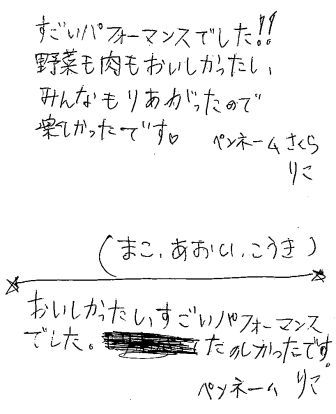 すごいパフォーマンスでした!!
野菜も肉もおいしかったし、
みんなもりあがったので
楽しかったです♡
ペンネーム さくら
りこ
(まこ、あおい、こうき)
おいしかたしいすごいパフォーマンス
でした。たのしかったです。
ペンネーム りこ